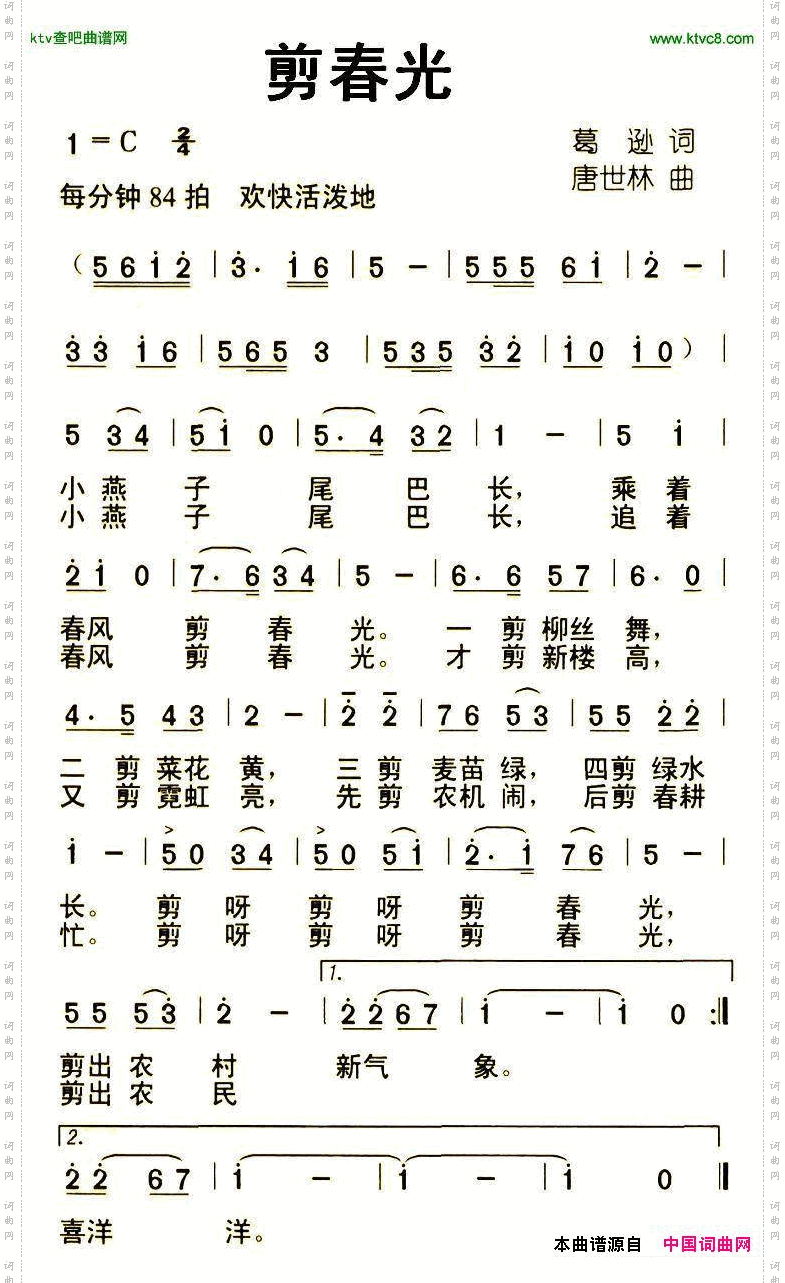 ktv查吧曲谱网
www.ktvc8.com
剪春光
1 = C 2/4
葛 逊 词
每分钟 84 拍 欢快活泼地
唐世林 曲
（5 6 1̇ 2̇ | 3̇· 1̇ 6 | 5 － | 5 5 5 6 1̇ | 2̇ － |
3̇ 3̇ 1̇ 6 | 5 6 5 3 | 5 3 5 3̇ 2̇ | 1̇ 0 1̇ 0）|
5 3 4 | 5 1̇ 0 | 5· 4 3 2 | 1 － | 5 1̇ |
小 燕 子 尾 巴 长， 乘 着
小 燕 子 尾 巴 长， 追 着
2̇ 1̇ 0 | 7· 6 3 4 | 5 － | 6· 6 5 7 | 6· 0 |
春风 剪 春 光。 一 剪 柳丝 舞，
春风 剪 春 光。 才 剪 新楼 高，
4· 5 4 3 | 2 － | 2̇ 2̇ | 7 6 5 3 | 5 5 2̇ 2̇ |
二 剪 菜花 黄， 三 剪 麦苗 绿， 四剪 绿水
又 剪 霓虹 亮， 先 剪 农机 闹， 后剪 春耕
1̇ － | 5 0 3 4 | 5 0 5 1̇ | 2̇· 1̇ 7 6 | 5 － |
长。 剪 呀 剪 呀 剪 春 光，
忙。 剪 呀 剪 呀 剪 春 光，
1.
5 5 5 3̇ | 2̇ － | 2̇ 2̇ 6 7 | 1̇ － | 1̇ 0 :||
剪出 农 村 新气 象。
剪出 农 民
2.
2̇ 2̇ 6 7 | 1̇ － | 1̇ － | 1̇ 0 ||
喜洋 洋。
本曲谱源自 中国词曲网